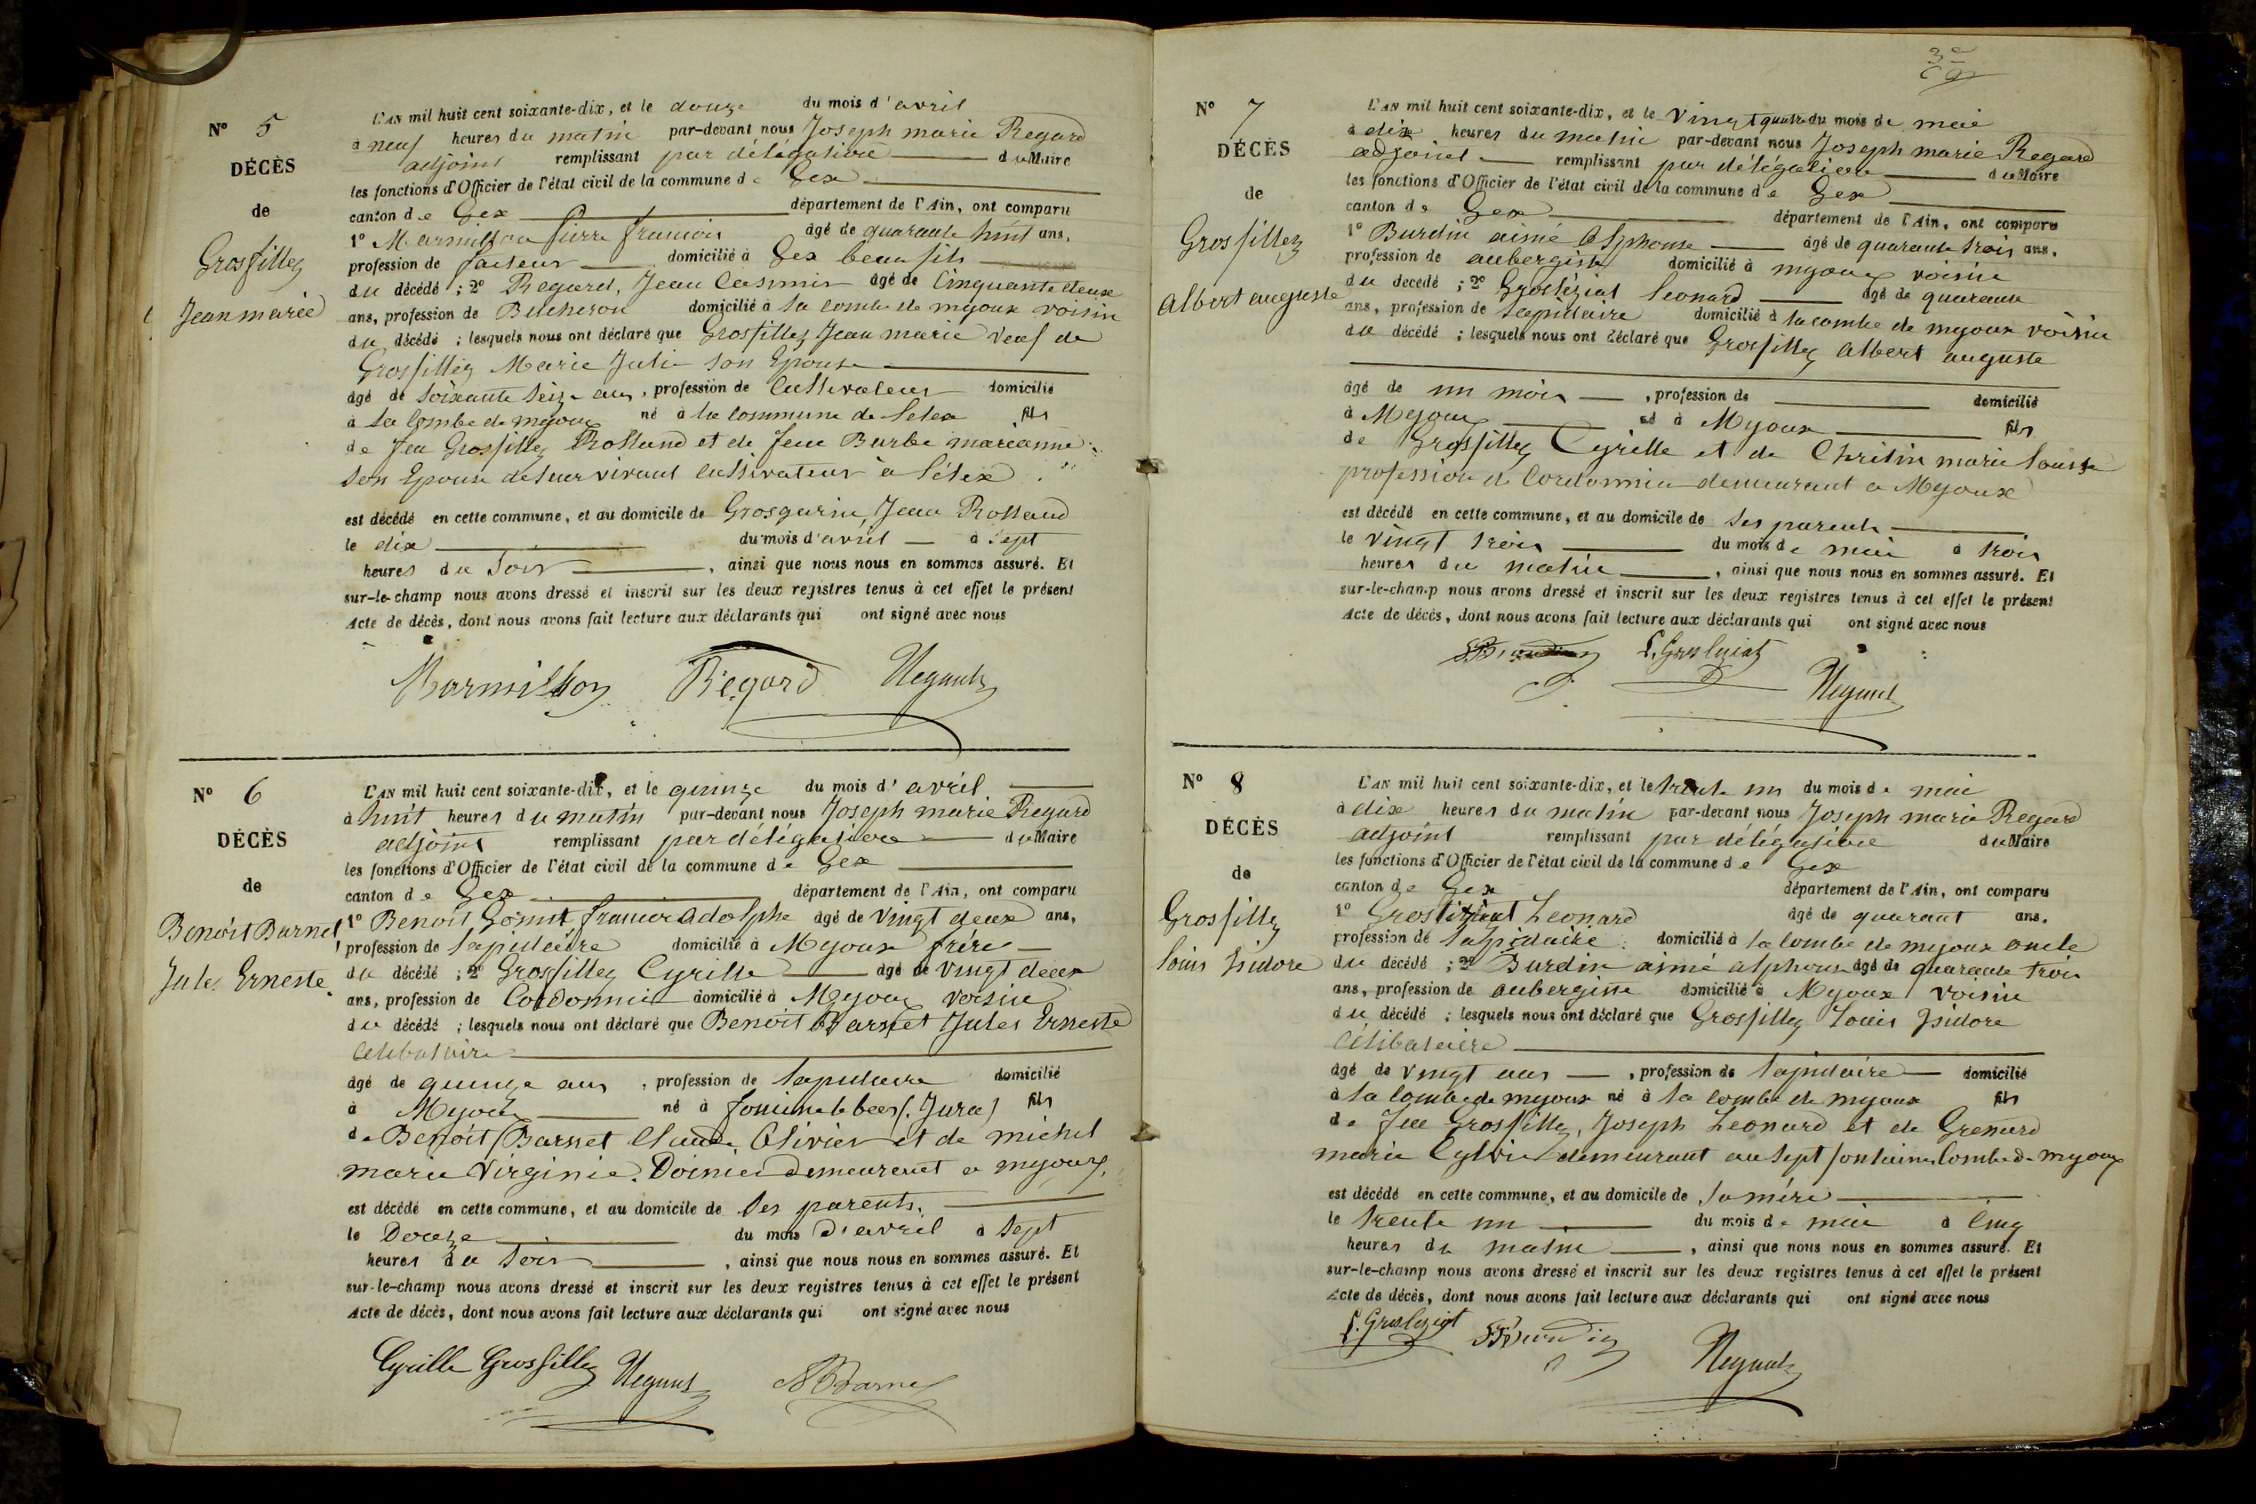 Nº 5
DÉCÈS
de
Grosfilley
Jean marie
L'AN mil huit cent soixante-dix, et le douze du mois d'avril
à neuf heures du matin par-devant nous Joseph marie Regard
adjoint remplissant par délégation du Maire
les fonctions d'Officier de l'état civil de la commune de Gex
canton de Gex département de l'Ain, ont comparu
1º Marmillon pierre francois âgé de quarante huit ans,
profession de facteur domicilié à Gex beau fils
du décédé ; 2º Regard, Jean Casimir âgé de Cinquante deux
ans, profession de Bucheron domicilié à la combe de mijoux voisin
du décédé ; lesquels nous ont déclaré que Grosfilley Jean marie Veuf de
Grosfilley Marie Julie son Epouse
âgé de soixante seize ans, profession de Cultivateur domicilié
à la Combe de mijoux né à la commune de Lelex fils
de feu Grosfilley Rolland et de feue Barbe marianne
son Epouse de leur vivant cultivateur à Lélex
est décédé en cette commune, et au domicile de Grosgurin, Jean Rolland
le dix du mois d'avril à sept
heures du soir, ainsi que nous nous en sommes assuré. Et
sur-le-champ nous avons dressé et inscrit sur les deux registres tenus à cet effet le présent
Acte de décès, dont nous avons fait lecture aux déclarants qui ont signé avec nous
Marmillon Regard
Nº 6
DÉCÈS
de
Benoit Barnet
Jules Erneste
L'AN mil huit cent soixante-dix, et le quinze du mois d'avril
à huit heures du matin par-devant nous Joseph marie Regard
adjoint remplissant par délégation du Maire
les fonctions d'Officier de l'état civil de la commune de Gex
canton de Gex département de l'Ain, ont comparu
1º Benoit francois Adolphe âgé de Vingt deux ans,
profession de lapidaire domicilié à Myoux frére
du décédé ; 2º Grosfilley Cyrille âgé de vingt deux
ans, profession de Cordonnier domicilié à Myoux voisin
du décédé ; lesquels nous ont déclaré que Benoit Barnet Jules Erneste
célibataire
âgé de quinze ans, profession de lapidaire domicilié
à Myoux né à (Jura) fils
de Benoit Barnet Claude Olivier et de michel
marie Virginie demeurant a myoux,
est décédé en cette commune, et au domicile de ses parents,
le Douze du mois d'avril à sept
heures du soir, ainsi que nous nous en sommes assuré. Et
sur-le-champ nous avons dressé et inscrit sur les deux registres tenus à cet effet le présent
Acte de décès, dont nous avons fait lecture aux déclarants qui ont signé avec nous
Cyrille Grosfilley
Nº 7
DÉCÈS
de
Grosfilley
Albert auguste
L'AN mil huit cent soixante-dix, et le Vingt quatre du mois de mai
à dix heures du matin par-devant nous Joseph marie Regard
adjoint remplissant par délégation du Maire
les fonctions d'Officier de l'état civil de la commune de Gex
canton de Gex département de l'Ain, ont comparu
1º Burdin aimé Alphonse âgé de quarante trois ans,
profession de aubergiste domicilié à myoux voisin
du décédé ; 2º Grosléziat Leonard âgé de quarante
ans, profession de lapidaire domicilié à la combe de myoux voisin
du décédé ; lesquels nous ont déclaré que Grosfilley Albert auguste
âgé de un mois, profession de domicilié
à Myoux né à Myoux fils
de Grosfilley Cyrille et de Christin marie Louise
profession de Cordonnier demeurant a Myoux
est décédé en cette commune, et au domicile de ses parents
le vingt trois du mois de mai à trois
heures du matin, ainsi que nous nous en sommes assuré. Et
sur-le-champ nous avons dressé et inscrit sur les deux registres tenus à cet effet le présent
Acte de décès, dont nous avons fait lecture aux déclarants qui ont signé avec nous
L. Grosleziat
Nº 8
DÉCÈS
de
Grosfilley
Louis Isidore
L'AN mil huit cent soixante-dix, et le trente un du mois de mai
à dix heures du matin par-devant nous Joseph marie Regard
adjoint remplissant par délégation du Maire
les fonctions d'Officier de l'état civil de la commune de Gex
canton de Gex département de l'Ain, ont comparu
1º Grosléziat Leonard âgé de quarant ans,
profession de lapidaire domicilié à la Combe de myoux oncle
du décédé ; 2º Burdin aimé alphonse âgé de quarante trois
ans, profession de aubergiste domicilié à Myoux voisin
du décédé ; lesquels nous ont déclaré que Grosfilley Louis Isidore
célibataire
âgé de vingt ans, profession de lapidaire domicilié
à la Combe de myoux né à la combe de myoux fils
de feu Grosfilley, Joseph Leonard et de Grenard
marie Cylvie demeurant au sept fontaines Combe de myoux
est décédé en cette commune, et au domicile de sa mére
le trente un du mois de mai à Cinq
heures du matin, ainsi que nous nous en sommes assuré. Et
sur-le-champ nous avons dressé et inscrit sur les deux registres tenus à cet effet le présent
Acte de décès, dont nous avons fait lecture aux déclarants qui ont signé avec nous
L. Grosleziat